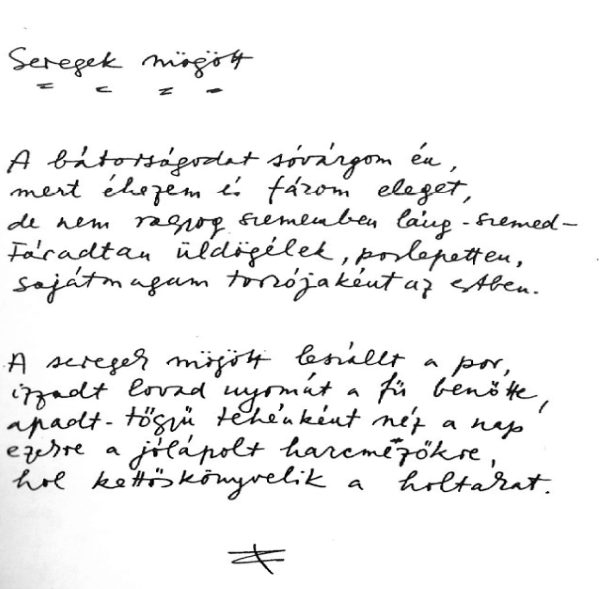 Seregek mögött
A bátorságodat sóvárgom én,
mert éhezem és fázom eleget,
de nem ragyog szememben láng-szemed –
Fáradtan üldögélek, porlepetten,
sajátmagam torzójaként az estben.
A seregek mögött leszállt a por,
izzadt lovad nyomát a fű benőtte,
apadt-tőgyű tehénként néz a nap
ezekre a jólápolt harcmezőkre,
hol kettőskönyvelik a holtakat.